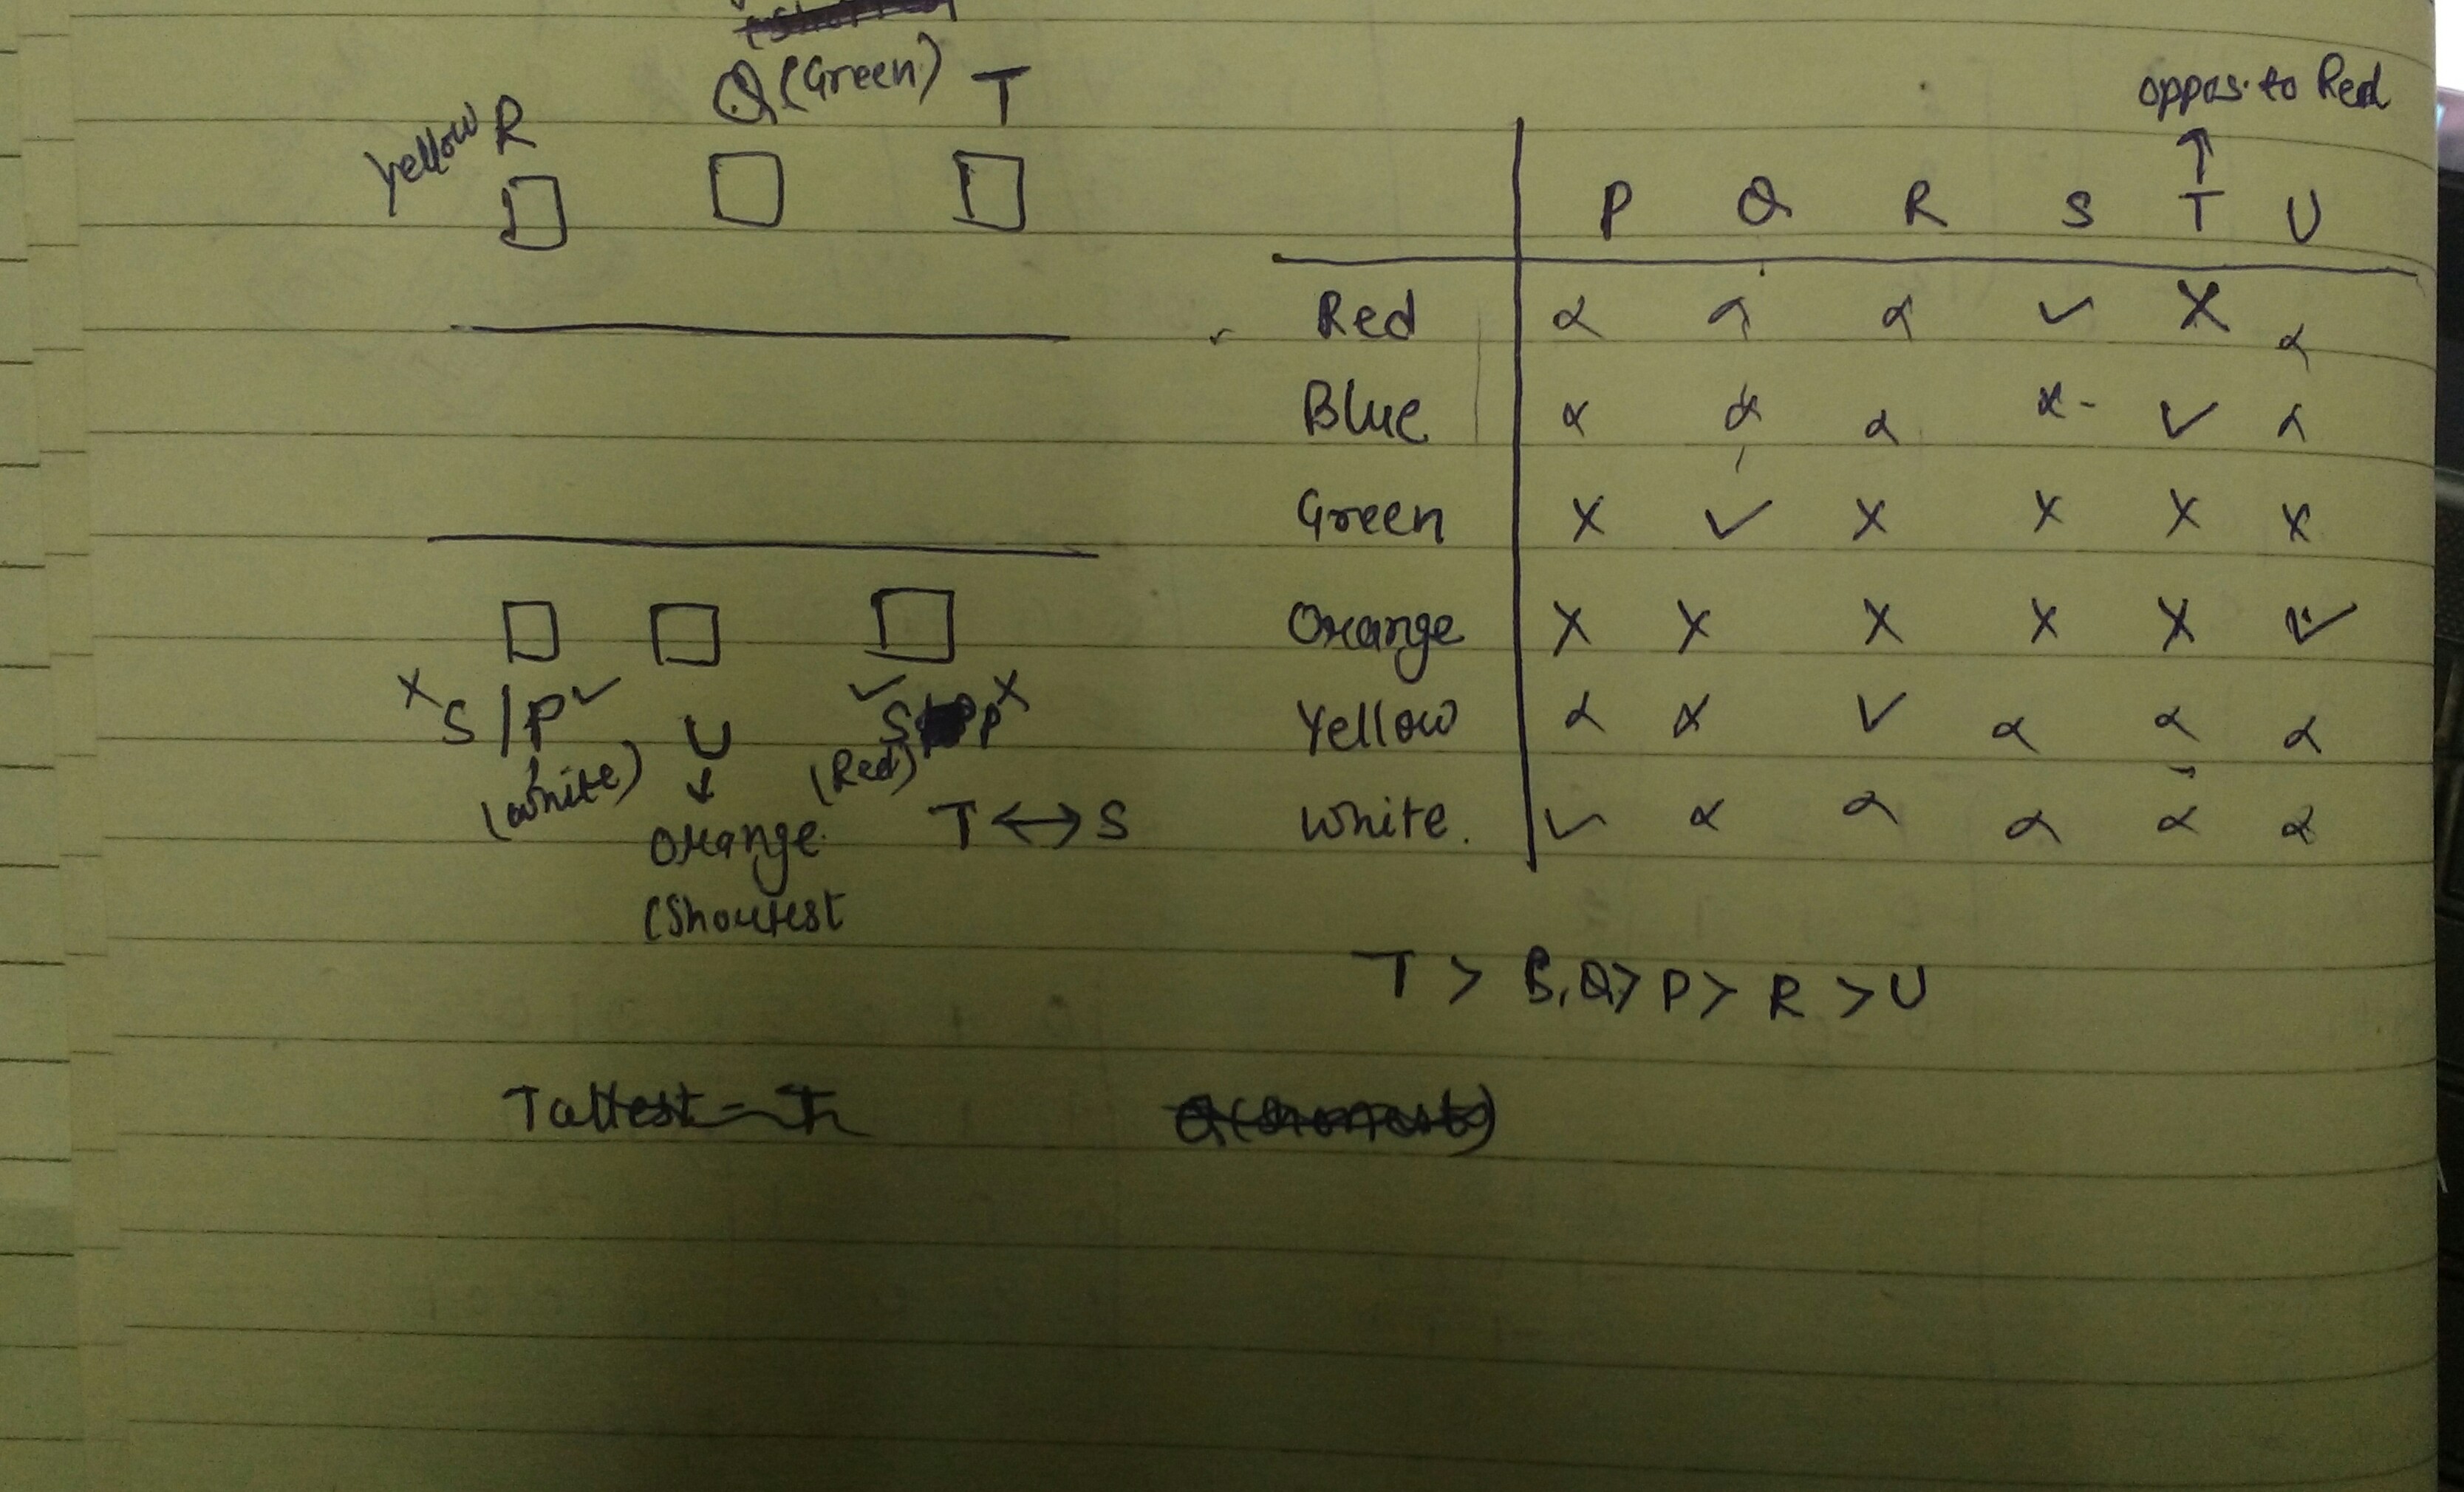 Q (Green) T
yellow R
S / P ✓
✓ S P X
(white) U (Red)
↓
Orange T ↔ S
(Shortest
oppos. to Red
↑
P Q R S T U
Red α α α ✓ X α
Blue α α α x - ✓ α
Green X ✓ X X X X
Orange X X X X X ✓
Yellow α x ✓ α α α
White. ✓ α α α α α
T > S, Q > P > R > U
Tallest = T